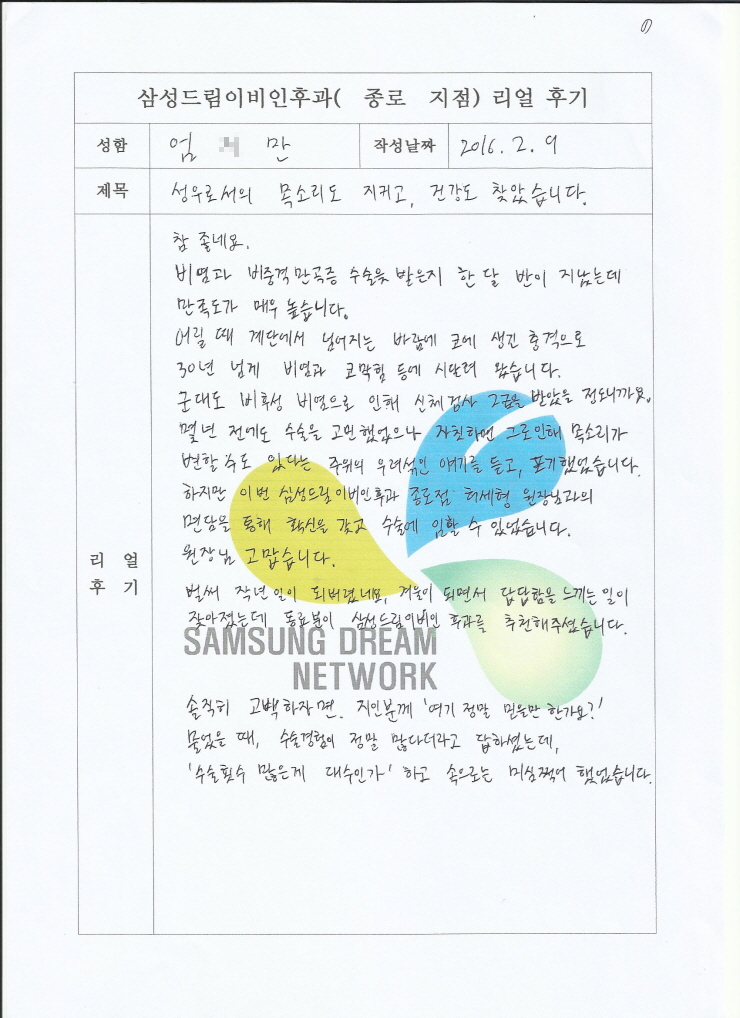 ①
삼성드림이비인후과( 종로 지점) 리얼 후기
성함 엄 만 작성날짜 2016. 2. 9
제목 성우로서의 목소리도 지키고, 건강도 찾았습니다.
리 얼
후 기
참 좋네요.
비염과 비중격만곡증 수술을 받은지 한 달 반이 지났는데
만족도가 매우 높습니다.
어릴 때 계단에서 넘어지는 바람에 코에 생긴 충격으로
30년 넘게 비염과 코막힘 등에 시달려 왔습니다.
군대도 비후성 비염으로 인해 신체검사 3급을 받았을 정도니까요.
몇년 전에도 수술을 고민했었으나 자칫하면 그로인해 목소리가
변할 수도 있다는 주위의 우려섞인 얘기를 듣고, 포기했었습니다.
하지만 이번 삼성드림이비인후과 종로점 허세형 원장님과의
면담을 통해 확신을 갖고 수술에 임할 수 있었습니다.
원장님 고맙습니다.
벌써 작년일이 되버렸네요, 겨울이 되면서 답답함을 느끼는 일이
잦아졌는데 동료분이 삼성드림이비인후과를 추천해주셨습니다.
SAMSUNG DREAM
NETWORK
솔직히 고백하자면. 지인분께 '여기 정말 믿을만 한가요?'
물었을 때, 수술경험이 정말 많다더라고 답하셨는데,
'수술횟수 많은게 대수인가' 하고 속으로는 미심쩍어 했었습니다.